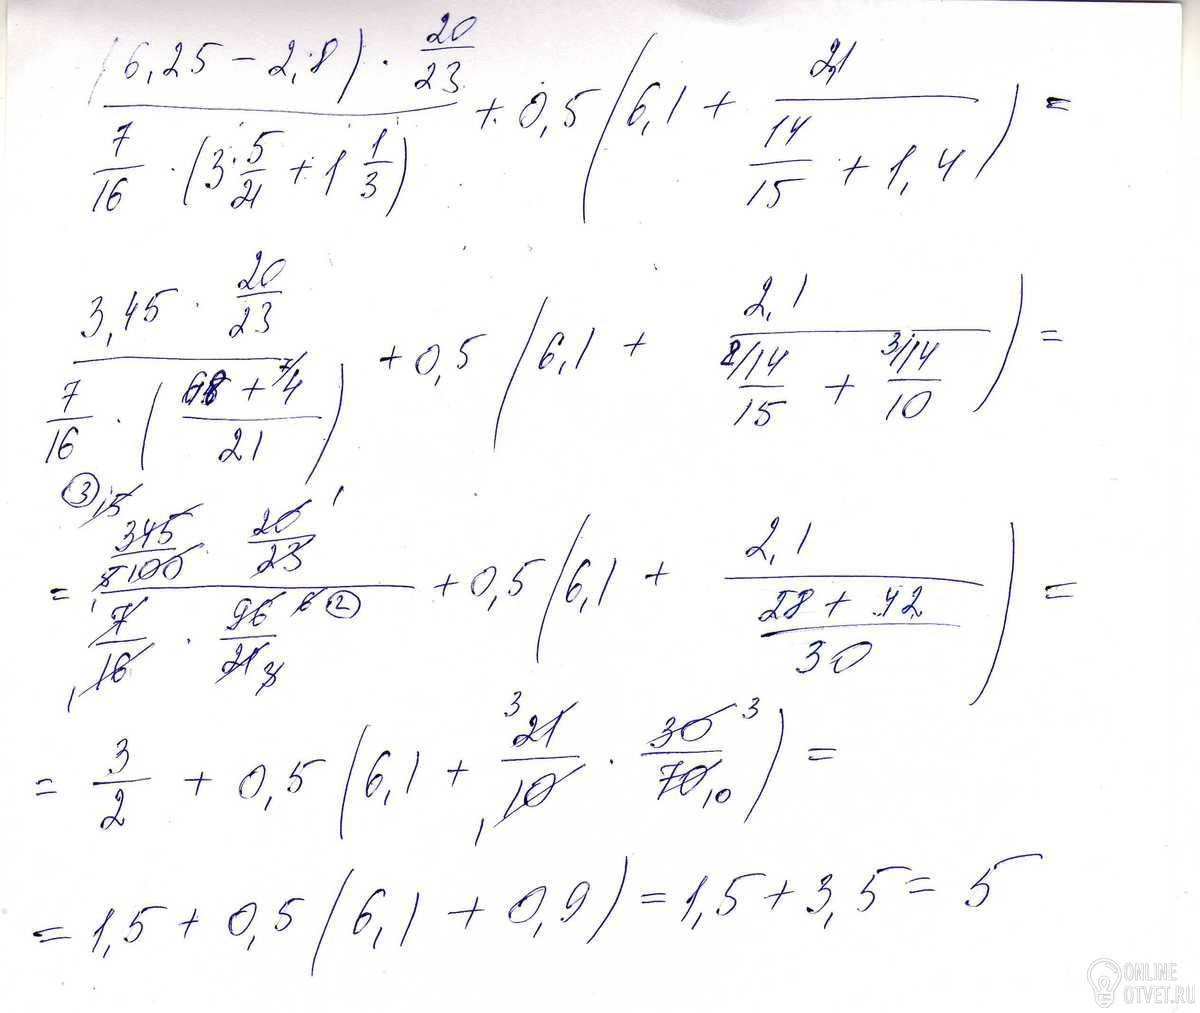 (6,25 − 2,8) · 20/23 / 7/16 · (3 5/21 + 1 1/3) + 0,5 (6,1 + 2,1 / 14/15 + 1,4) =
3,45 · 20/23 / 7/16 · (68 + 7/4 / 21) + 0,5 (6,1 + 2,1 / 2/14/15 + 3/14/10) =
= 345/100 · 20/23 / 7/16 · 96/21 + 0,5 (6,1 + 2,1 / 28 + 42/30) =
= 3/2 + 0,5 (6,1 + 21/10 · 30/70) =
= 1,5 + 0,5 (6,1 + 0,9) = 1,5 + 3,5 = 5
ONLINE
OTVET.RU